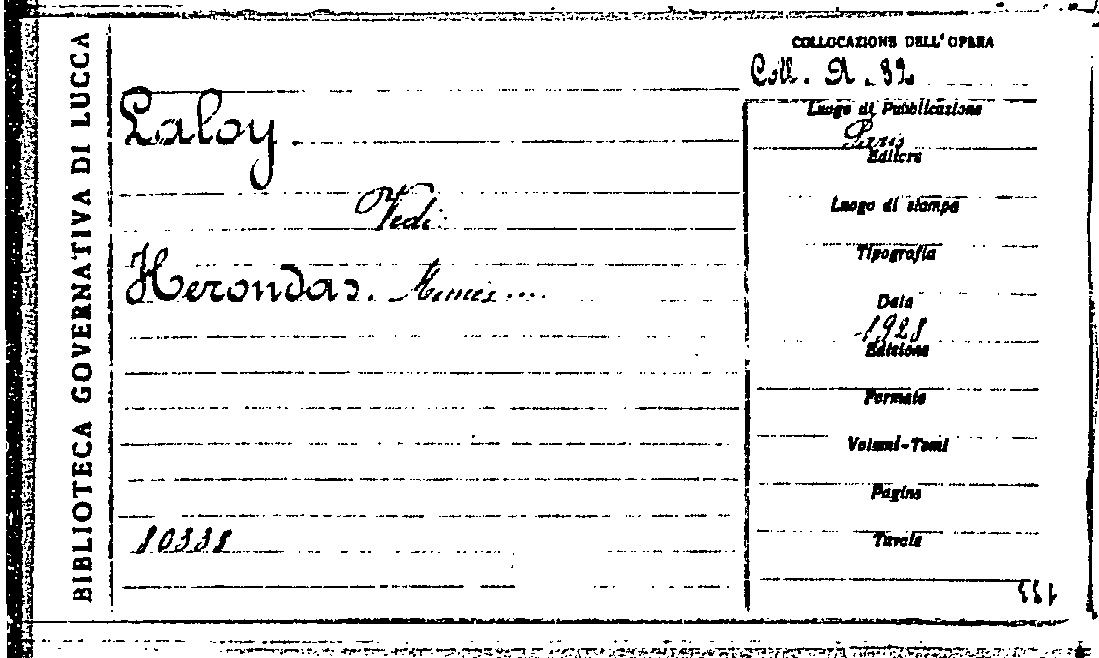 BIBLIOTECA GOVERNATIVA DI LUCCA
COLLOCAZIONE DELL'OPERA
Coll. A. 82
Laloy
Vedi
Herondas. Mimes....
10338
Luogo di Pubblicazione
Paris
Editore
Luogo di stampa
Tipografia
Data
1928
Edizione
Formato
Volumi-Tomi
Pagine
Tavole